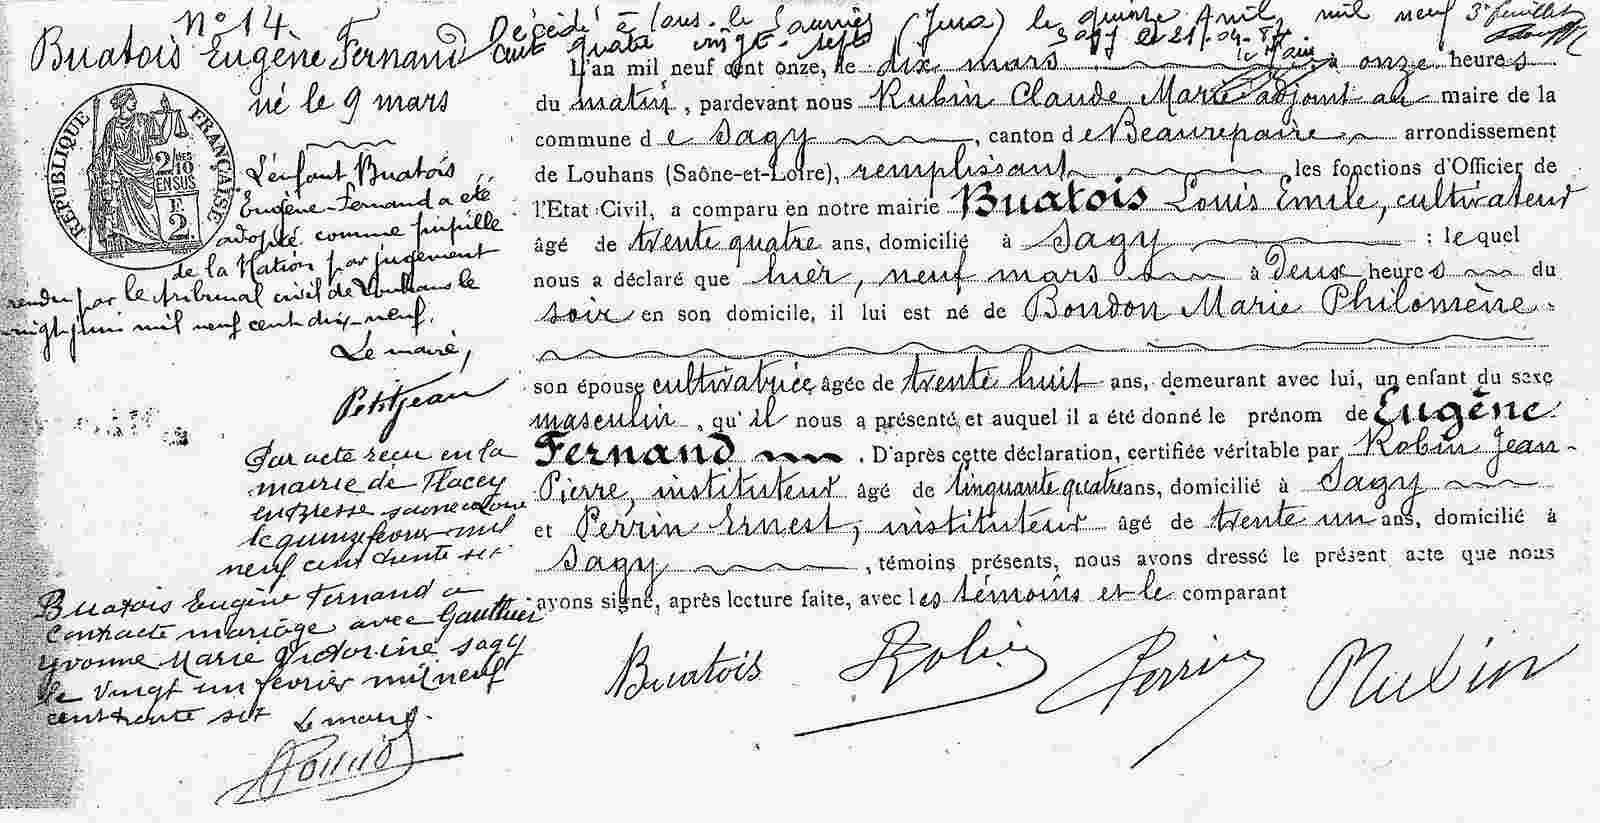 N° 14
Buatois Eugène Fernand
né le 9 mars
RÉPUBLIQUE FRANÇAISE
2/10
EN SUS
F
2.
L'enfant Buatois
Eugène-Fernand a été
adopté comme pupille
de la Nation par jugement
rendu par le tribunal civil de Louhans le
vingt juin mil neuf cent dix-neuf.
Le maire,
Petitjean
Par acte reçu en la
mairie de Flacey
en Bresse Saône et Loire
le quinze février mil
neuf cent trente sept
Buatois Eugène Fernand a
contracté mariage avec Gauthier
Yvonne Marie Victorine Sagy
le vingt un février mil neuf
cent trente sept
Le maire.
Décédé à Lons-le-Saunier (Jura) le quinze Avril mil neuf
cent quatre vingt-sept
Sagy le 21-04-87
le Maire
3e feuillet
L'an mil neuf cent onze, le dix mars à onze heures
du matin, pardevant nous Rubin Claude Marie adjoint au maire de la
commune de Sagy, canton de Beaurepaire arrondissement
de Louhans (Saône-et-Loire), remplissant les fonctions d'Officier de
l'Etat Civil, a comparu en notre mairie Buatois Louis Emile, cultivateur
âgé de trente quatre ans, domicilié à Sagy : lequel
nous a déclaré que hier, neuf mars à deux heures du
soir en son domicile, il lui est né de Bondon Marie Philomène
son épouse cultivatrice âgée de trente huit ans, demeurant avec lui, un enfant du sexe
masculin, qu'il nous a présenté et auquel il a été donné le prénom de Eugène
Fernand. D'après cette déclaration, certifiée véritable par Robin Jean-
Pierre, instituteur âgé de cinquante quatre ans, domicilié à Sagy
et Perrin Ernest, instituteur âgé de trente un ans, domicilié à
Sagy, témoins présents, nous avons dressé le présent acte que nous
avons signé, après lecture faite, avec les témoins et le comparant
Buatois Robin Perrin Rubin